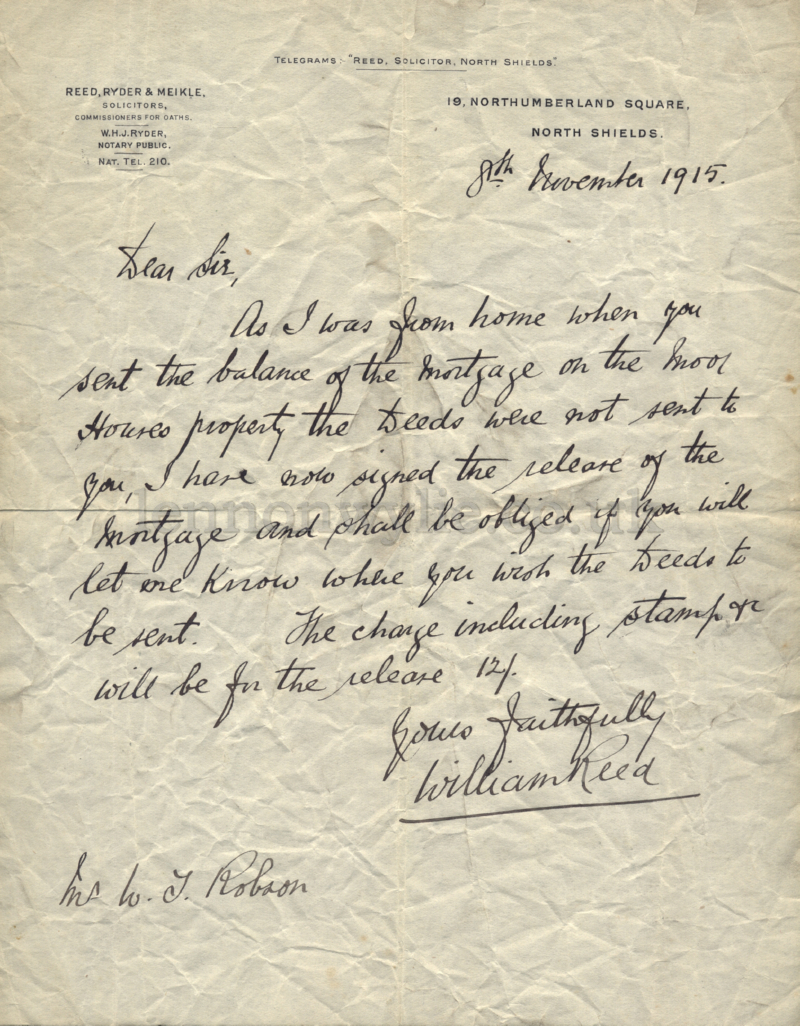 TELEGRAMS:- "REED, SOLICITOR, NORTH SHIELDS."
REED, RYDER & MEIKLE,
SOLICITORS,
COMMISSIONERS FOR OATHS.
W.H.J. RYDER,
NOTARY PUBLIC.
NAT. TEL. 210.
19, NORTHUMBERLAND SQUARE,
NORTH SHIELDS.
8th November 1915.
Dear Sir,
As I was from home when you
sent the balance of the Mortgage on the Moor
Houses property the Deeds were not sent to
you, I have now signed the release of the
Mortgage and shall be obliged if you will
let me know where you wish the Deeds to
be sent. The charge including stamp &c
will be for the release 12/.
Yours faithfully
William Reed
Mr W. T. Robson